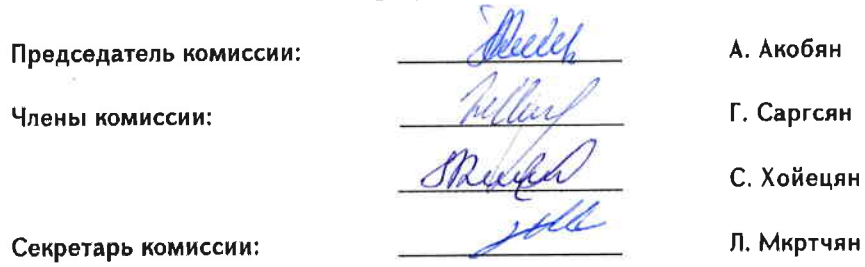 Председатель комиссии: А. Акобян
Члены комиссии: Г. Саргсян
С. Хойецян
Секретарь комиссии: Л. Мкртчян